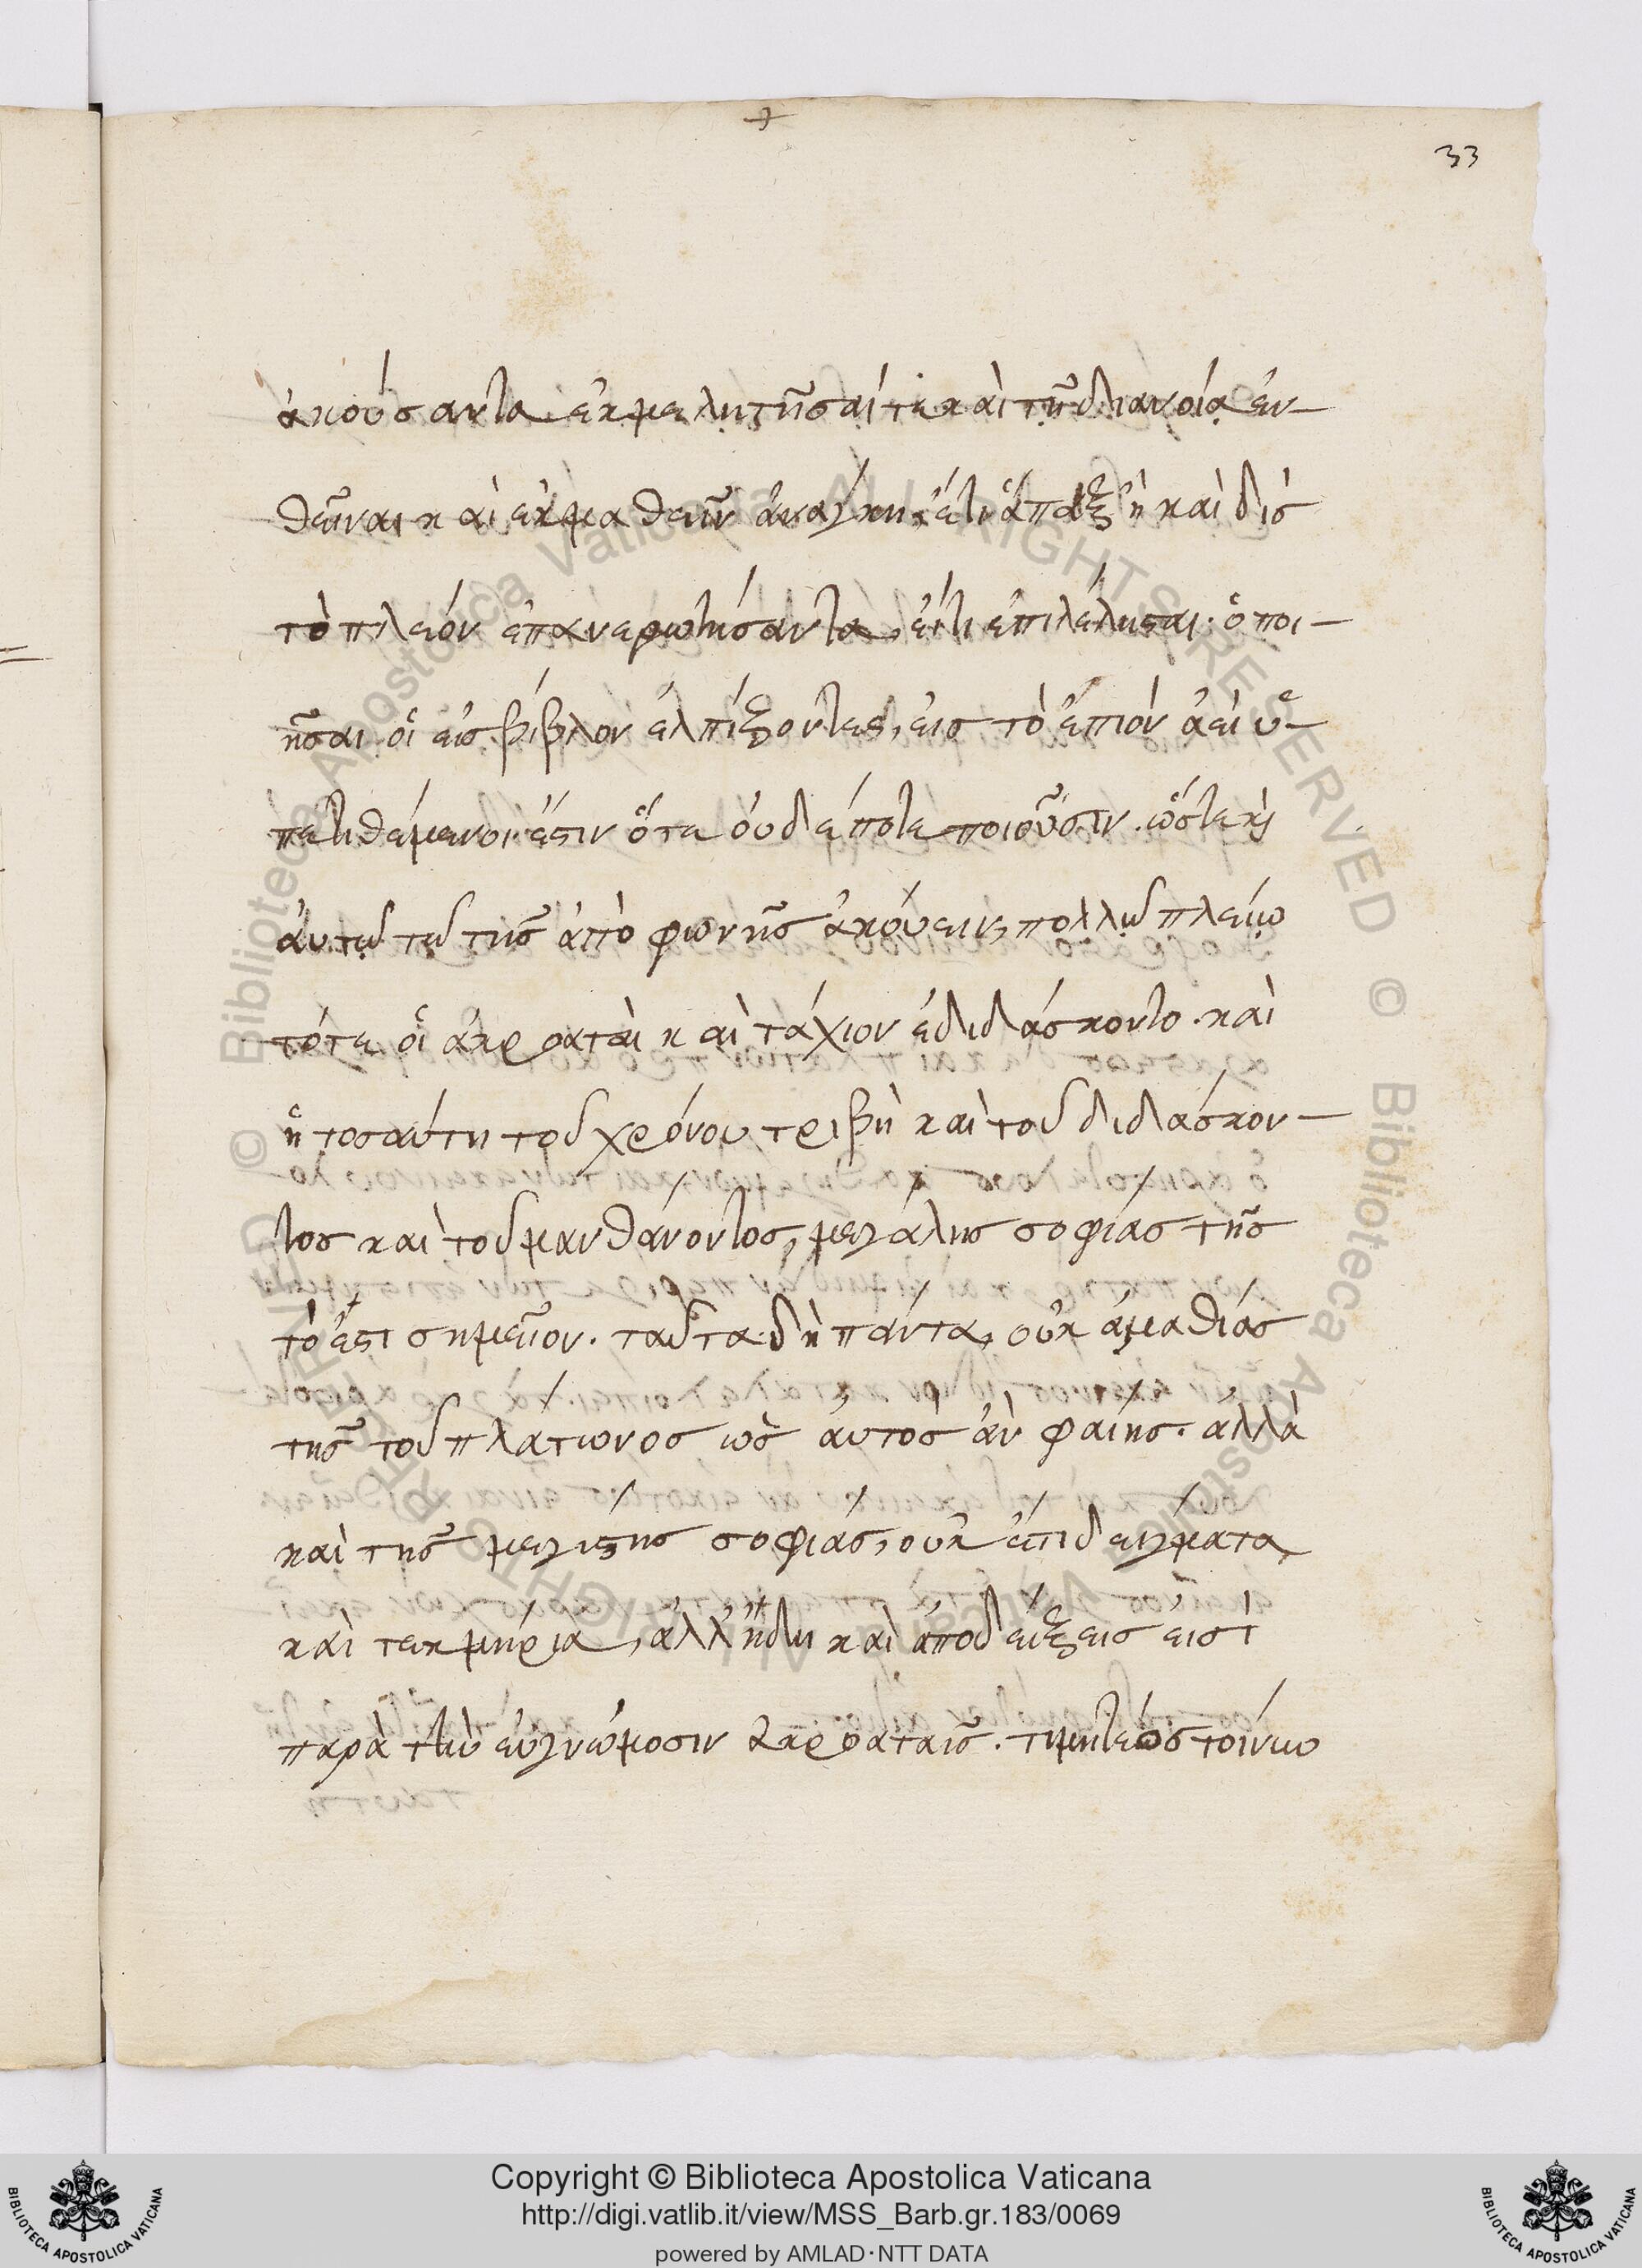 33
ἀκούσαντα ἐκμελητῆσαί τε καὶ τῇ διανοίᾳ ἐν-
θεῖναι καὶ ἐκμαθεῖν ἀνάγκη, ἔτι ἅπαξ ἢ καὶ δὶς
τὸ πλεῖον ἐπανερωτήσαντα, εἴτι ἐπιλέλησται. ὁ ποι-
ῆσαι οἱ εἰς βίβλον ἐλπίζοντες, εἰς τὸ ἐπιὸν ἀεὶ ὑ-
περτιθέμενοι ἔστιν ὅτε οὐδέποτε ποιοῦσιν. ὥστε καὶ
αὐτῷ τῷ τῆς ἀπὸ φωνῆς ἀκούειν, πολλῷ πλείω
τότε οἱ ἀκροαταὶ καὶ τάχιον ἐδιδάσκοντο. καὶ
ἡ τοσαύτη τοῦ χρόνου τριβὴ καὶ τοῦ διδάσκον-
τος καὶ τοῦ μανθάνοντος, μεγάλης σοφίας τῆς
τό ἐστι σημεῖον. ταῦτα δὴ πάντα, οὐκ ἀμαθίας
τῆς τοῦ πλάτωνος ὡς αὐτὸς ἂν φαίης. ἀλλὰ
καὶ τῆς μεγίστης σοφίας, οὐκ ἐπιδείγματα
καὶ τεκμήρια, ἀλλ' ἤδη καὶ ἀποδείξεις εἰσὶ
παρὰ τοῖς εὐγνώμοσιν ἀκροαταῖς. τιμητέος τοίνυν
Copyright © Biblioteca Apostolica Vaticana
http://digi.vatlib.it/view/MSS_Barb.gr.183/0069
powered by AMLAD·NTT DATA
BIBLIOTECA APOSTOLICA VATICANA
BIBLIOTECA APOSTOLICA VATICANA